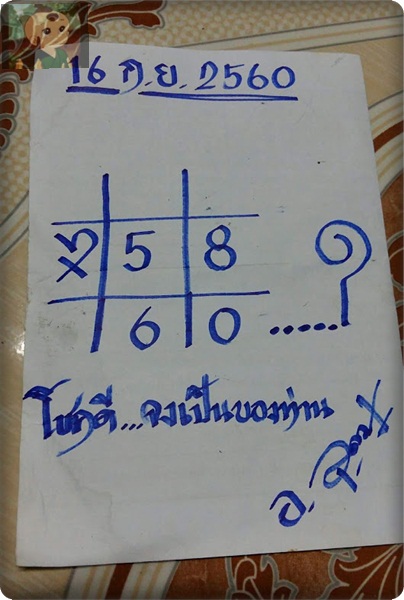 16 ก.ย. 2560
5 8
6 0 .....?
โชคดี...จงเป็นของท่าน
อ.